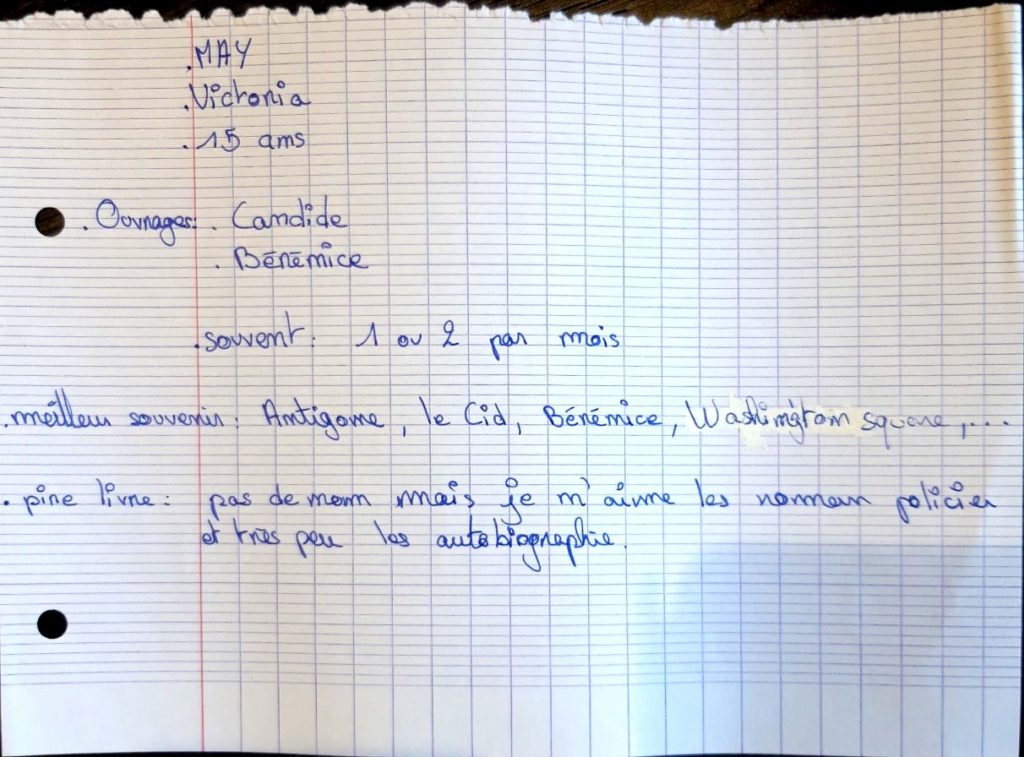 . MAY
. Victoria
. 15 ans
. Ouvrages: . Candide
. Bérénice
. souvent : 1 ou 2 par mois
. meilleur souvenir : Antigone, le Cid, Bérénice, Washington square, ...
. pire livre : pas de nom mais je n'aime les roman policier
et très peu les autobiographie.